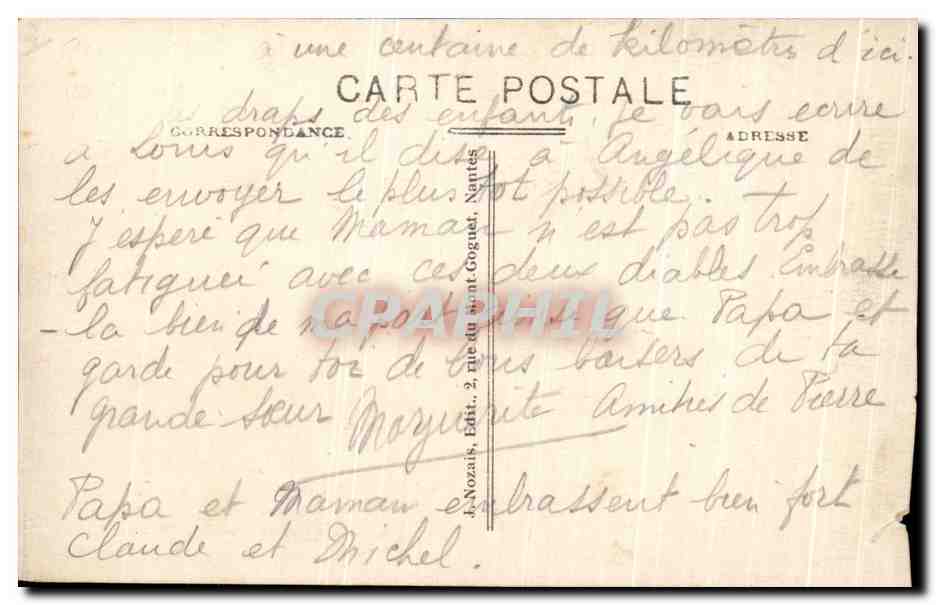 à une centaine de kilomètres d'ici.
CARTE POSTALE
draps des enfants, je vais ecrire
CORRESPONDANCE
ADRESSE
a Louis qu'il dise à Angélique de
les envoyer le plus tot possible.
J'espere que Maman n'est pas trop
fatiguée avec ces deux diables. Embrasse
la bien de ma part ainsi que Papa et
garde pour toi de bons baisers de ta
grande soeur Marguerite Amitiés de Pierre
Papa et Maman embrassent bien fort
Claude et Michel.
J. Nozais, Edit., 2, rue du Mont-Goguet, Nantes
CPAPHIL